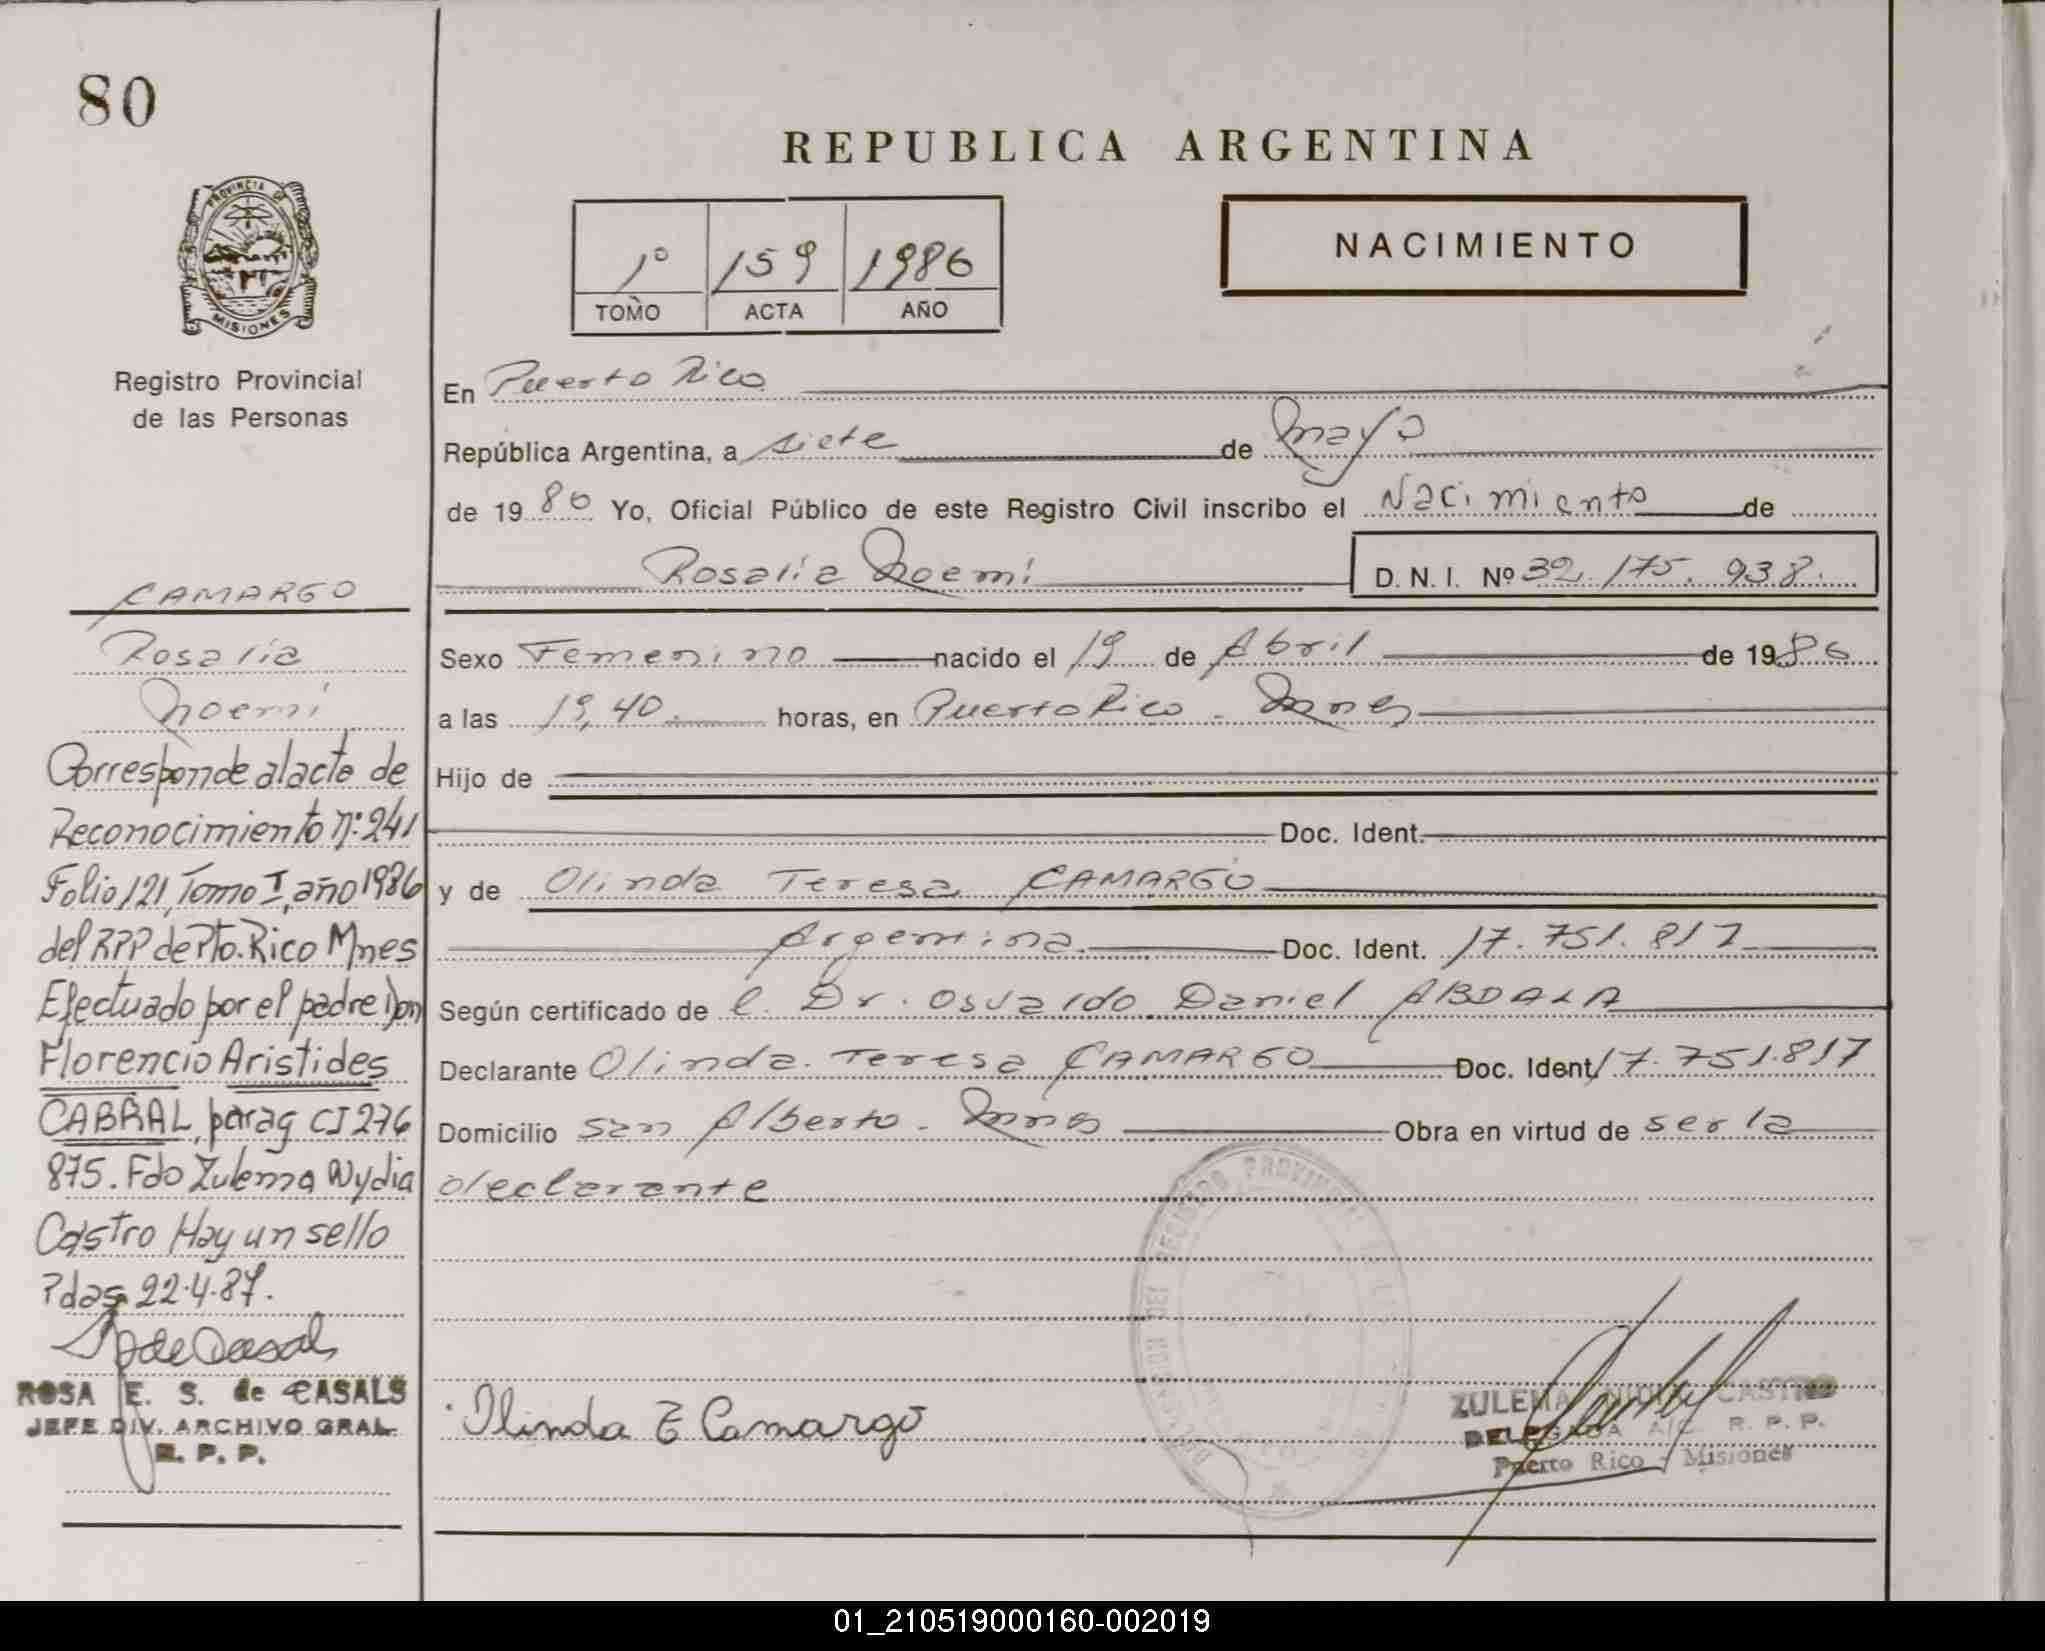 80
REPUBLICA ARGENTINA
PROVINCIA DE
MISIONES
1º 159 1986
TOMO ACTA AÑO
NACIMIENTO
Registro Provincial
de las Personas
En Puerto Rico
República Argentina, a siete de Mayo
de 1986 Yo, Oficial Público de este Registro Civil inscribo el Nacimiento de
Rosalia Noemi D.N.I. Nº 32.175.938.
Sexo Femenino nacido el 19 de Abril de 1986
a las 19,40 horas, en Puerto Rico - Mnes
Hijo de
Doc. Ident.
y de Olinda Teresa CAMARGO
Argentina. Doc. Ident. 17.751.817
Según certificado de el Dr. Osvaldo Daniel ABDALA
Declarante Olinda Teresa CAMARGO Doc. Ident. 17.751.817
Domicilio San Alberto - Mnes Obra en virtud de ser la
declarante
Olinda T Camargo
ZULEMA CASTRO
DELEGADA A/C R. P. P.
Puerto Rico - Misiones
CAMARGO
Rosalia
Noemi
Corresponde al acta de
Reconocimiento Nº 241
Folio 121, Tomo I, año 1986
del RPP de Pto. Rico Mnes
Efectuado por el padre Don
Florencio Aristides
CABRAL, parag CI 276
875. Fdo Zulema Nydia
Castro Hay un sello
Pdas 22.4.87.
ROSA E. S. de CASALS
JEFE DIV. ARCHIVO GRAL.
R. P. P.
01_210519000160-002019